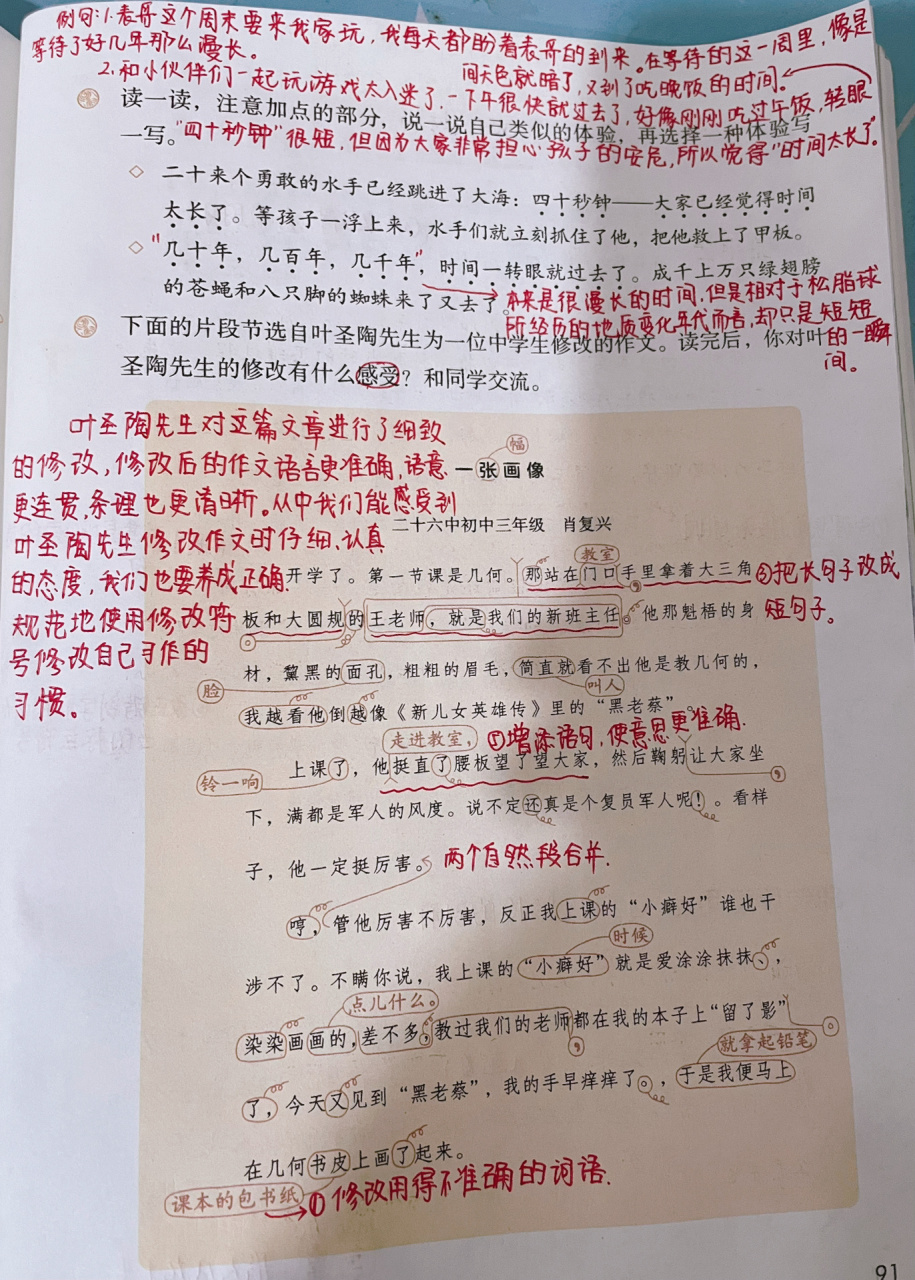 例句:1.表哥这个周末要来我家玩,我每天都盼着表哥的到来。在等待的这一周里,像是
等待了好几年那么漫长。
2.和小伙伴们一起玩游戏太入迷了.一下午很快就过去了,好像刚刚吃过午饭,转眼
间天色就暗了,又到了吃晚饭的时间.
读一读,注意加点的部分,说一说自己类似的体验,再选择一种体验写
一写。
"四十秒钟"很短,但因为大家非常担心孩子的安危,所以觉得"时间太长了"
二十来个勇敢的水手已经跳进了大海:四十秒钟——大家已经觉得时间
太长了。等孩子一浮上来,水手们就立刻抓住了他,把他救上了甲板。
"几十年,几百年,几千年",时间一转眼就过去了。成千上万只绿翅膀
的苍蝇和八只脚的蜘蛛来了又去了
本来是很漫长的时间,但是相对于松脂球
所经历的地质变化年代而言,却只是短短
的一瞬
间。
下面的片段节选自叶圣陶先生为一位中学生修改的作文。读完后,你对叶
圣陶先生的修改有什么感受?和同学交流。
叶圣陶先生对这篇文章进行了细致
的修改,修改后的作文语言更准确,语意
更连贯,条理也更清晰。从中我们能感受到
叶圣陶先生修改作文时仔细、认真
的态度,我们也要养成正确.
规范地使用修改符
号修改自己习作的
习惯。
幅
一张画像
二十六中初中三年级 肖复兴
教室
开学了。第一节课是几何。那站在门口手里拿着大三角
③把长句子改成
短句子。
板和大圆规的王老师,就是我们的新班主任。他那魁梧的身
材,黧黑的面孔,粗粗的眉毛,简直就看不出他是教几何的,
脸
叫人
我越看他倒越像《新儿女英雄传》里的"黑老蔡"。
走进教室,
②增添语句,使意思更准确.
铃一响
上课了,他挺直了腰板望了望大家,然后鞠躬让大家坐
下,满都是军人的风度。说不定还真是个复员军人呢!。看样
子,他一定挺厉害。
两个自然段合并.
哼,管他厉害不厉害,反正我上课的"小癖好"谁也干
时候
涉不了。不瞒你说,我上课的"小癖好"就是爱涂涂抹抹、,
点儿什么。
染染画画的,差不多,教过我们的老师都在我的本子上"留了影"
就拿起铅笔
了,今天又见到"黑老蔡",我的手早痒痒了。,于是我便马上
在几何书皮上画了起来。
课本的包书纸
①修改用得不准确的词语.
91